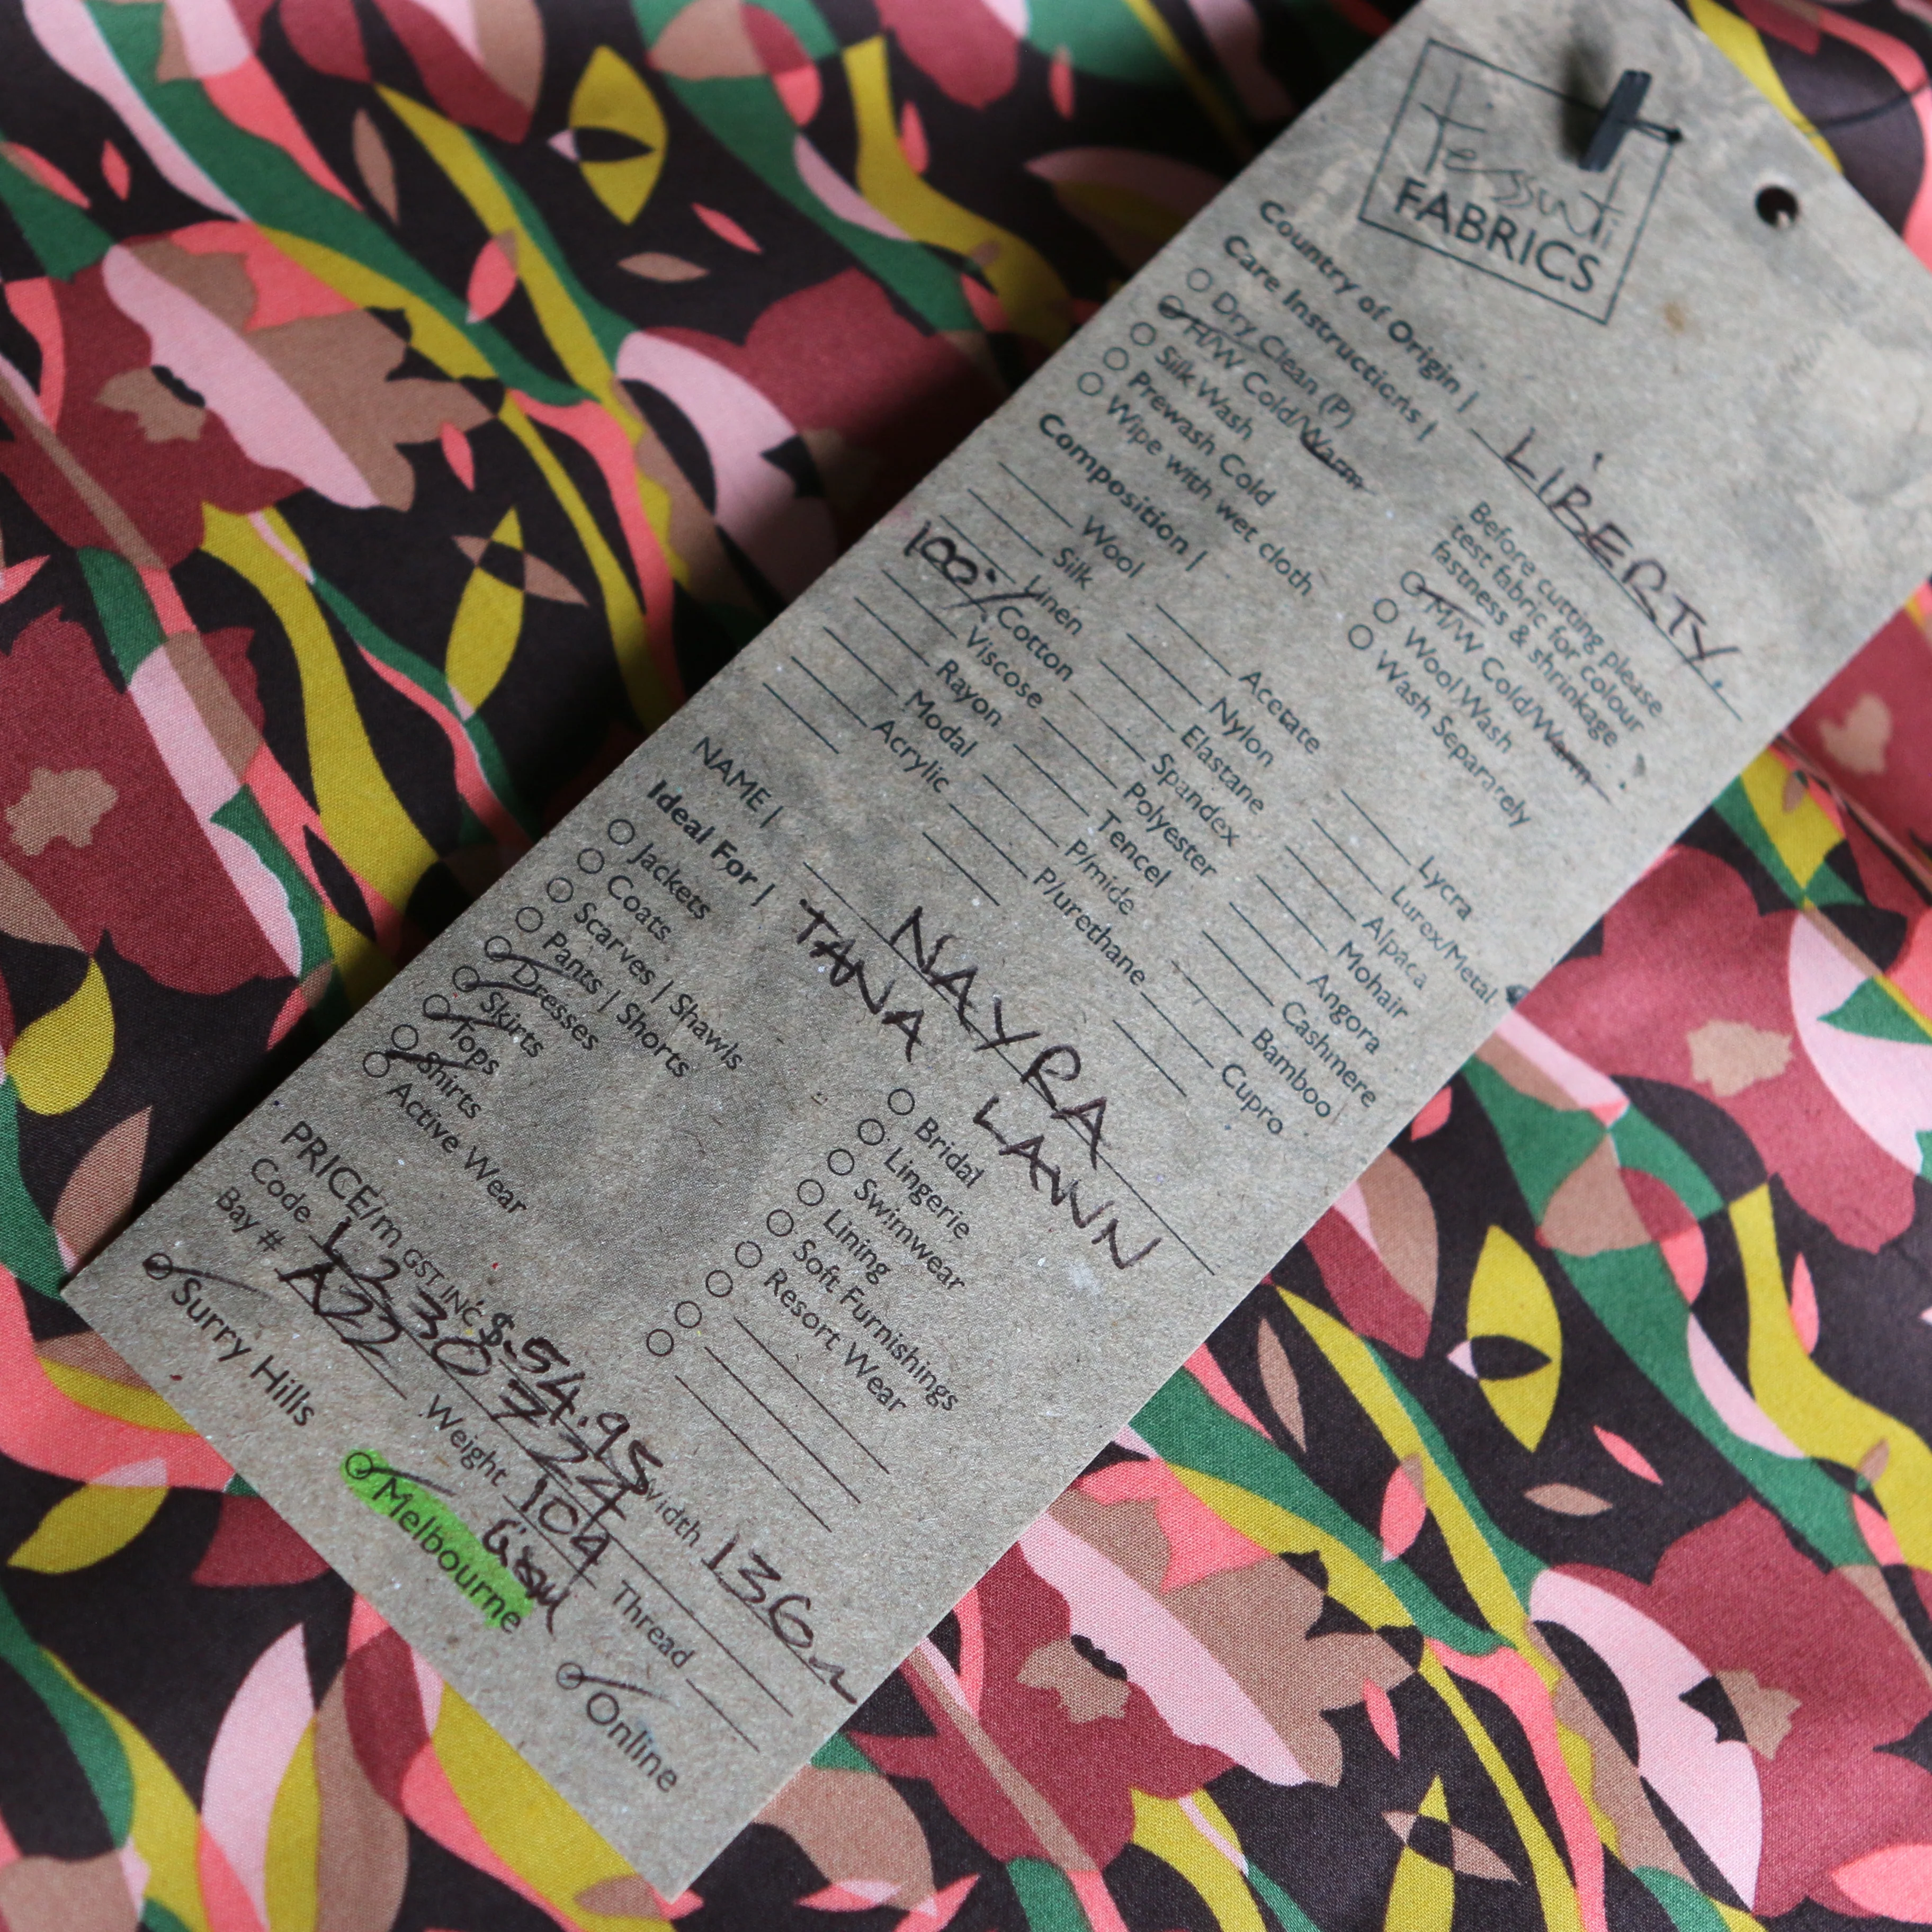 Tessuti
FABRICS
Country of Origin | LIBERTY
Care Instructions |
Dry Clean (P)
H/W Cold/Warm
Silk Wash
Prewash Cold
Wipe with wet cloth
Before cutting please
test fabric for colour
fastness & shrinkage
M/W Cold/Warm
Wool Wash
Wash Separately
Composition |
Wool
Silk
Linen
100% Cotton
Viscose
Rayon
Modal
Acrylic
Acetate
Nylon
Elastane
Spandex
Polyester
Tencel
P/mide
P/urethane
Lycra
Lurex/Metal
Alpaca
Mohair
Angora
Cashmere
Bamboo
Cupro
NAME | NAYRA
TANA LAWN
Ideal For |
Jackets
Coats
Scarves | Shawls
Pants | Shorts
Dresses
Skirts
Tops
Shirts
Active Wear
Bridal
Lingerie
Swimwear
Lining
Soft Furnishings
Resort Wear
PRICE/m GST INC $54.95 Width 136
Code 12307224
Bay # A22 Weight 104 Thread
Surry Hills
Melbourne
Online